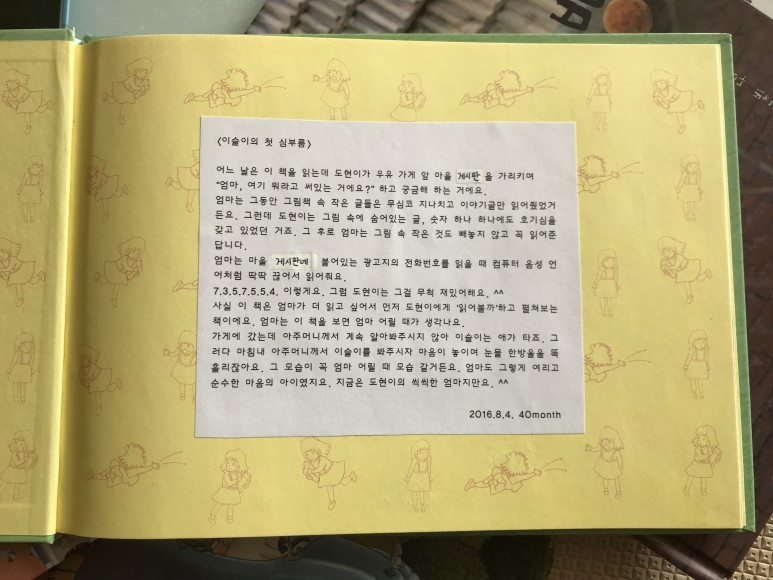 <이슬이의 첫 심부름>
어느 날은 이 책을 읽는데 도현이가 우유 가게 앞 마을 게시판 을 가리키며
"엄마, 여기 뭐라고 써있는 거에요?" 하고 궁금해 하는 거에요.
엄마는 그동안 그림책 속 작은 글들은 무심코 지나치고 이야기글만 읽어줬었거
든요. 그런데 도현이는 그림 속에 숨어있는 글, 숫자 하나 하나에도 호기심을
갖고 있었던 거죠. 그 후로 엄마는 그림 속 작은 것도 빼놓지 않고 꼭 읽어준
답니다.
엄마는 마을 게시판에 붙어있는 광고지의 전화번호를 읽을 때 컴퓨터 음성 언
어처럼 딱딱 끊어서 읽어줘요.
7,3,5,7,5,5,4. 이렇게요. 그럼 도현이는 그걸 무척 재밌어해요. ^^
사실 이 책은 엄마가 더 읽고 싶어서 먼저 도현이에게 '읽어볼까'하고 펼쳐보는
책이에요. 엄마는 이 책을 보면 엄마 어릴 때가 생각나요.
가게에 갔는데 아주머니께서 계속 알아봐주시지 않아 이슬이는 애가 타죠. 그
러다 마침내 아주머니께서 이슬이를 봐주시자 마음이 놓이며 눈물 한방울을 똑
흘리잖아요. 그 모습이 꼭 엄마 어릴 때 모습 같거든요. 엄마도 그렇게 여리고
순수한 마음의 아이였지요. 지금은 도현이의 씩씩한 엄마지만요. ^^
2016.8.4. 40month